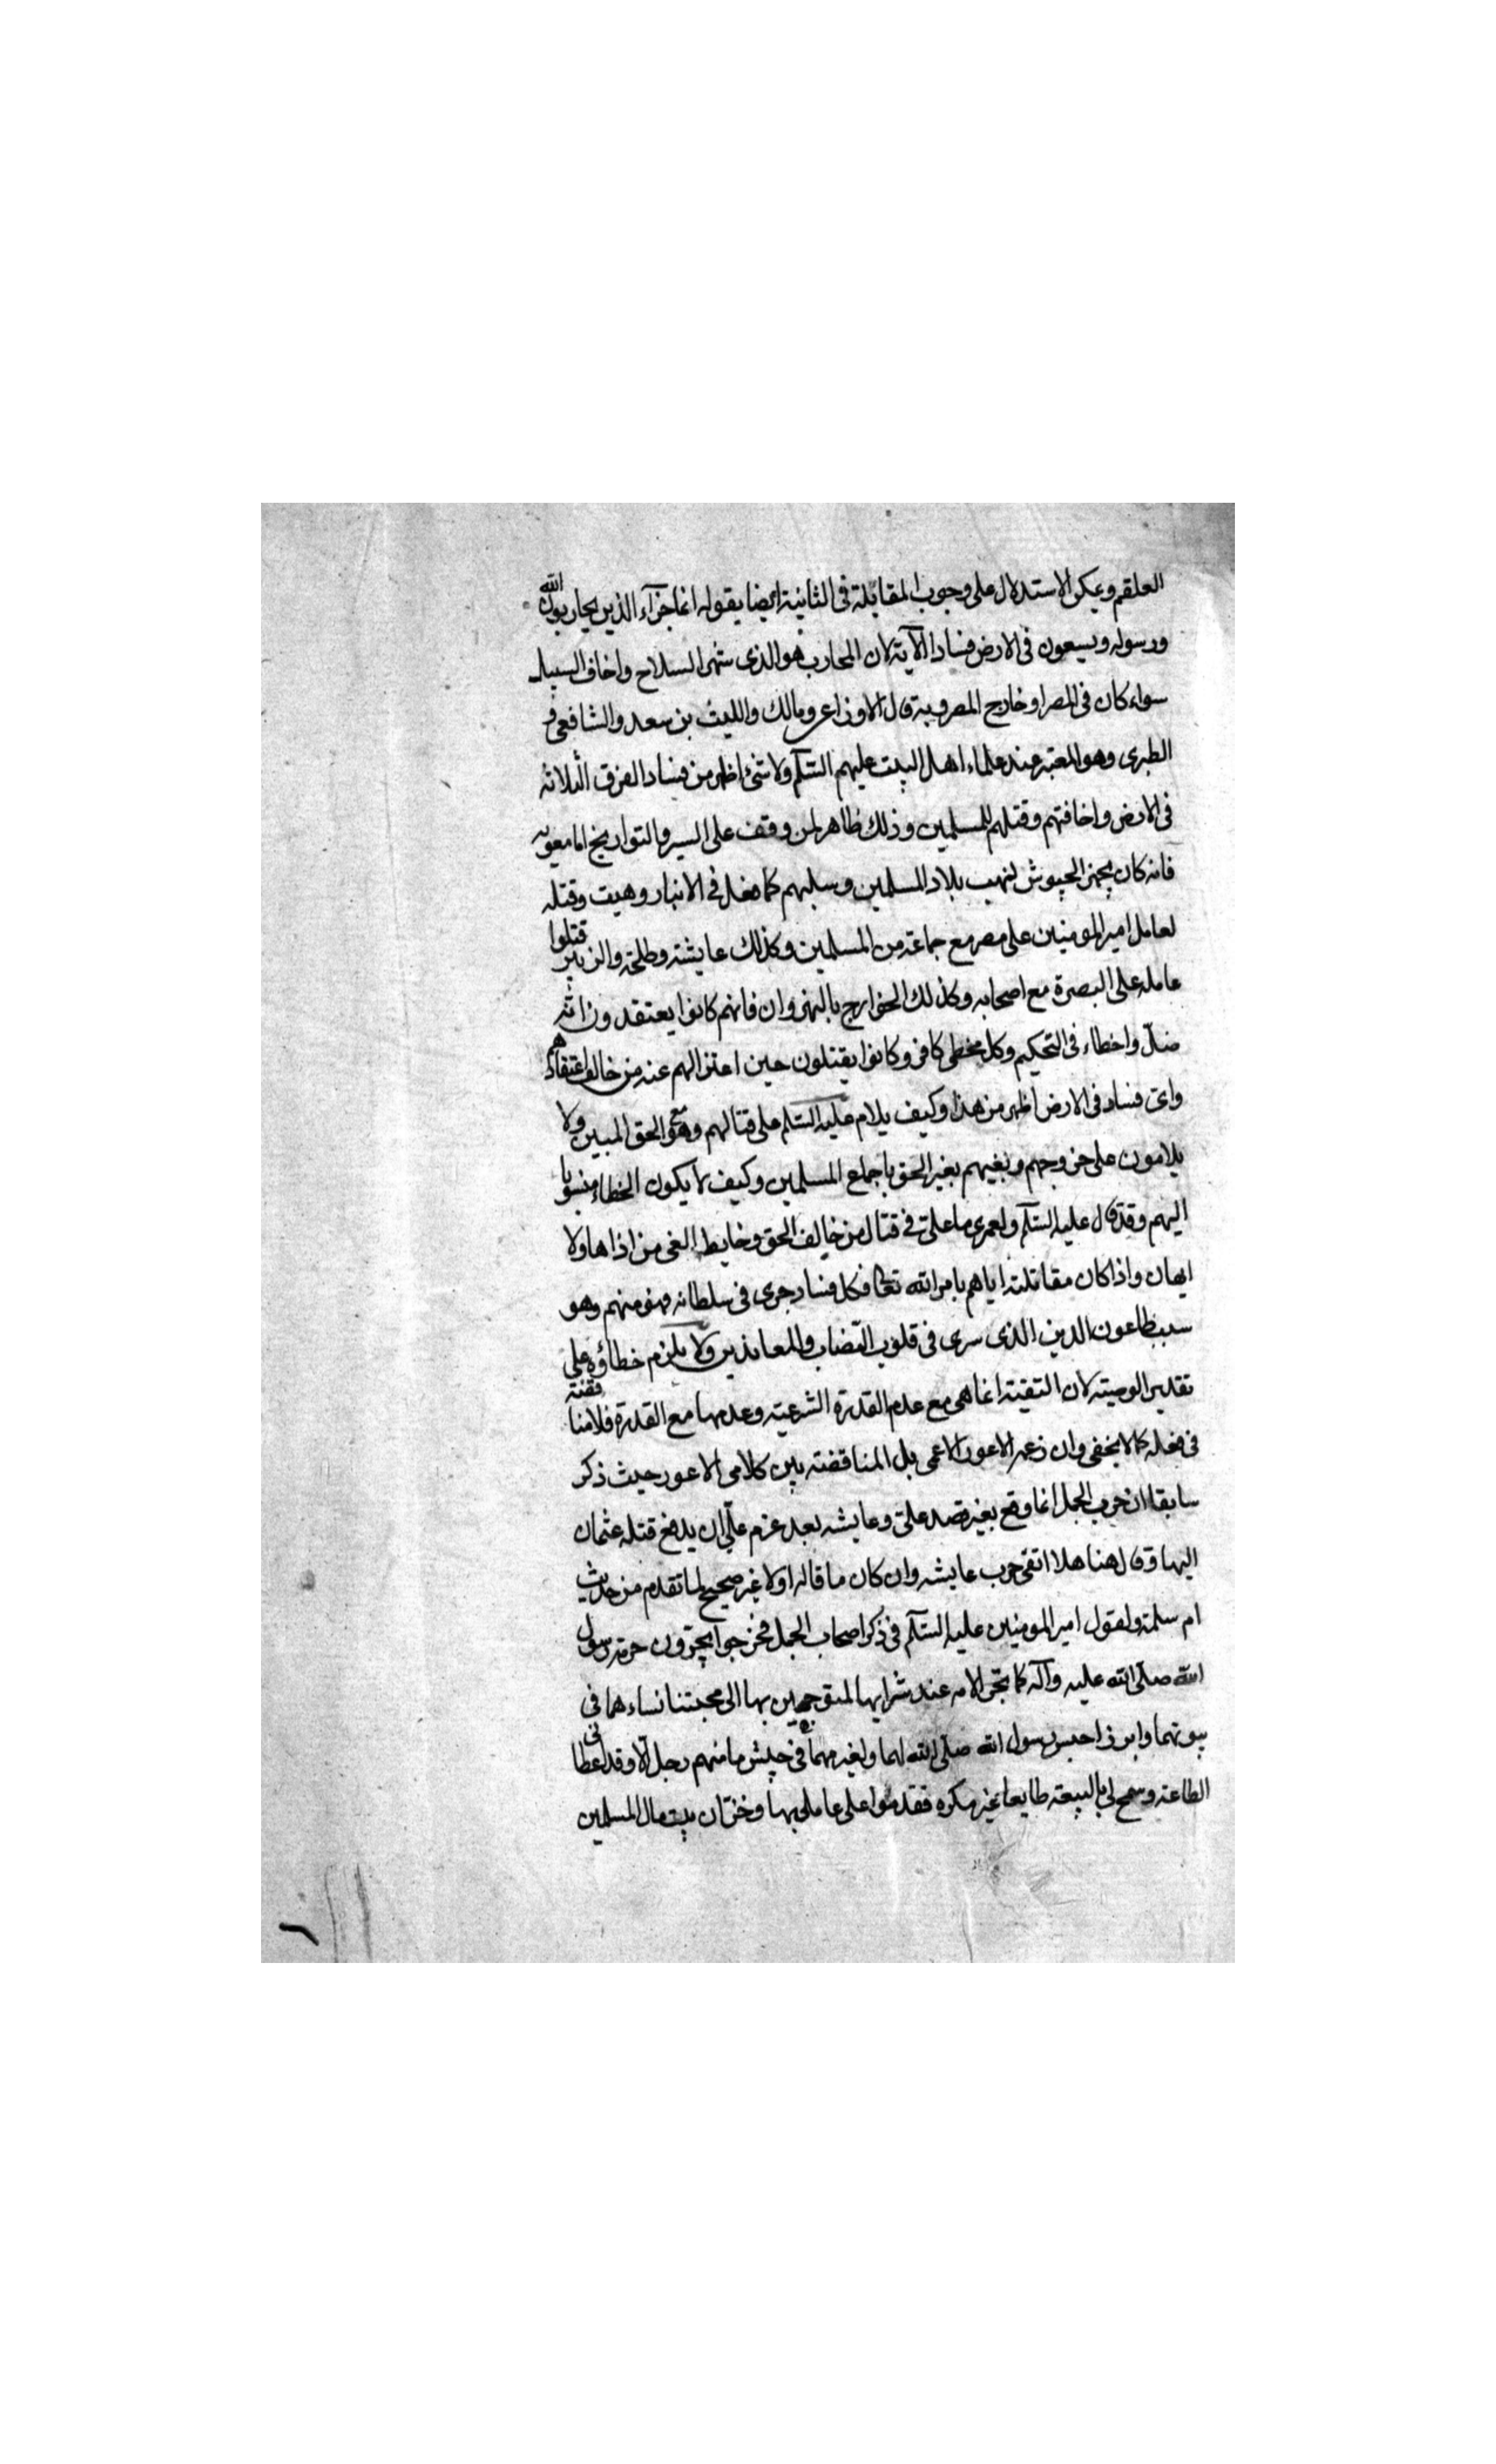 العلقم ويمكن الاستدلال على وجوب المقاتلة فى الثانية ايضا بقوله انما جزآء الذين يحاربون الله
ورسوله ويسعون فى الارض فسادا الآية لان المحارب هو الذى شهر السلاح واخاف السبيل
سواء كان فى المصر او خارج المصر وبه قال الاوزاعى ومالك والليث بن سعد والشافعى و
الطبرى وهو المعتبر عند علماء اهل البيت عليهم السلم ولا شئ اظهر من فساد الفرق الثلاثه
فى الارض واخافتهم وقتلهم للمسلمين وذلك ظاهر لمن وقف على السير والتواريخ اما معويه
فانه كان يجهز الجيوش لنهب بلاد المسلمين وسلبهم كما فعل فى الانبار وهيت وقتله
لعامل امير المومنين على مصر مع جماعة من المسلمين وكذلك عايشه وطلحة والزبير قتلوا
عامله على البصرة مع اصحابه وكذلك الخوارج بالنهروان فانهم كانوا يعتقدون انه
ضلّ واخطاء فى التحكيم وكل مخطى كافر وكانوا يقتلون حين اعتزالهم عنه من خالف اعتقادهم
واى فساد فى الارض اظهر من هذا وكيف يلام عليه السلم على قتالهم وهو الحق المبين ولا
يلامون على خروجهم وبغيهم بغير الحق باجماع المسلمين وكيف لا يكون الخطاء منسوبا
اليهم وقد قال عليه السلم ولعمرى ما علىّ فى قتال من خالف الحق وخابط الغى من اذاها ولا
ايهان واذا كان مقاتلته اياهم بامر الله تعالى فكل فساد جرى فى سلطانه فهو منهم وهو
سبب طاعون الدين الذى سرى فى قلوب النصاب والمعاندين ولا يلزم خطاؤه على
تقدير الوصية لان التقية انما هى مع عدم القدرة الشرعية وعدمها مع القدرة فلا مناقضة
فى فعله كما لا يخفى وان زعمه الاعور الاعمى بل المناقضة بين كلامى الاعور حيث ذكر
سابقا ان حرب الجمل انما وقع بغير قصد على وعايشه بعد عزم على ان يدفع قتله عثمان
اليها وقال هنا هلا اتقى حرب عايشه وان كان ما قاله اولا غير صحيح لما تقدم من حديث
ام سلمة ولقول امير المومنين عليه السلم فى ذكر اصحاب الجمل فخرجوا يجرّون حرمة رسول
الله صلى الله عليه وآله كما تجر الامه عند شرايها المتوجهين بها الى محبتنا نساءهما فى
بيوتهما وابرزا حبيس رسول الله صلى الله لهما ولغيرهما فى جيش ما منهم رجل الا وقد اعطانى
الطاعة وسمح لى بالبيعة طايعا غير مكره فقدموا على عاملى بها وخزّان بيت مال المسلمين